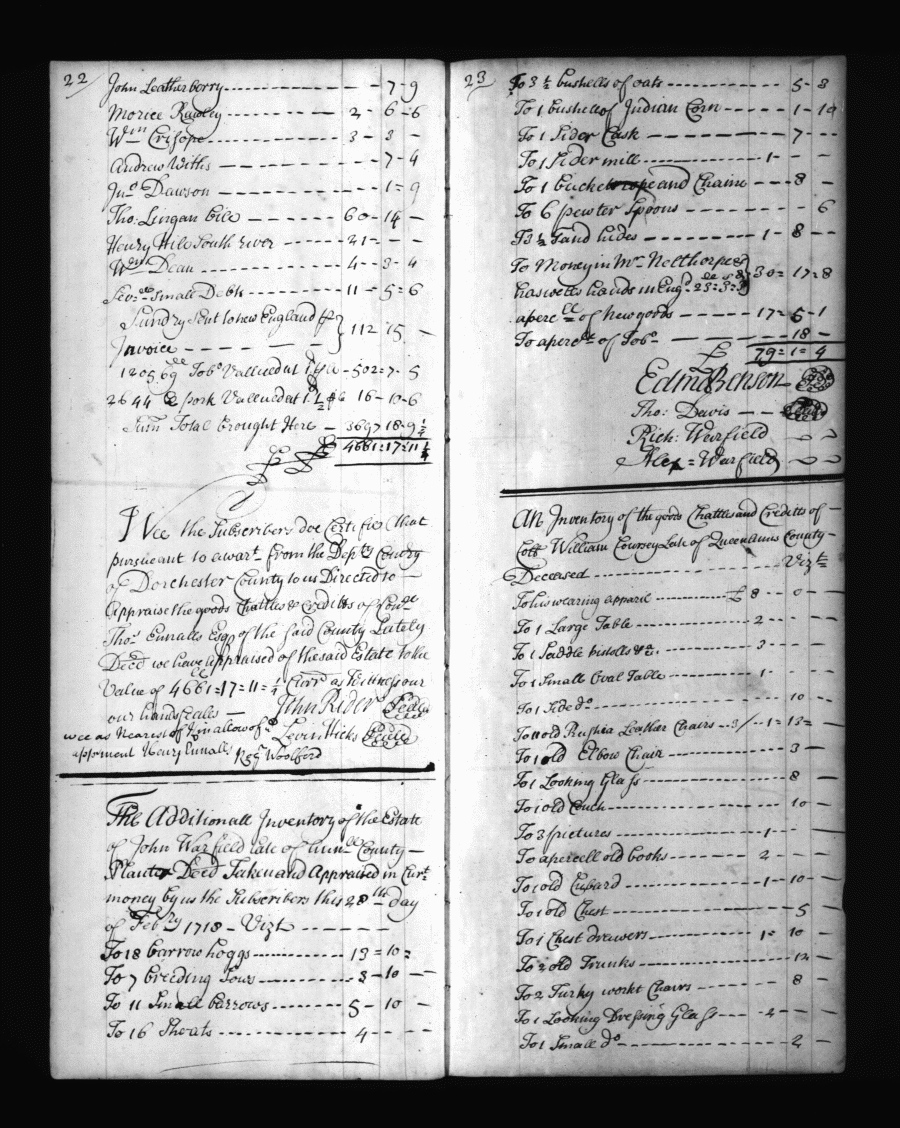 22
John Leatherberry - - 7 - 9
Morice Rawley - - 2 - 6 - 6
Wm Crisope - - 3 - 3 -
Andrew Withs - - 7 - 4
Jno Dawson - - 1 = 9
Tho: Lingan bile - - 60 - 14 -
Henry Hile South river - - 21 = - -
Wm Dean - - 4 - 3 - 4
Sevrll Small Debts - - 11 = 5 = 6
Sundry Sent to new England p
Invoice - - } 112 15 -
120569 lb Tobo Vallued at 1d - 502 = 7 - 5
2644 lb pork Vallued at 1 1/2 p lb 16 - 10 - 6
Sum Total brought Here - 3697 18 - 9 1/4
4661 = 17 = 11 1/4
Wee the Subscribers doe Certifie that
pursueant to a wart from the Depty Comry
of Dorchester County to us Directed to
Appraise the goods Chattles & Credits of
Thos Ennalls Esqr of the said County Lately
Decd we have appraised of the said Estate to the
Value of 4661 = 17 = 11 = 1/4 Curr as Witness our
our hands seals - John Rider Seal
wee as Nearest of kin allow of ys Levin Hicks Seal
apprment Henry Ennalls Rogr Woolford
The Additionall Inventory of the Estate
of John Warfield late of Ann ll County -
Planter Decd Taken and Appraised in Curt
money by us the Subscribers this 28th day
of Febry 1718 - Vizt - - -
To 18 barrow hoggs - - 13 = 10 =
To 7 breeding Sows - - 3 - 10 -
To 11 Small barrows - - 5 - 10 -
To 16 Shoats - - 4 - - -
23
To 3 1/2 bushells of oats - - 5 - 3
To 1 bushell of Indian Corn - - 1 - 10
To 1 Sider Cask - - 7 - -
To 1 Sider mill - - 1 - - -
To 1 bucket rope and Chaine - - 8 -
To 6 pewter Spoons - - 6
To 3 1/2 Tand hides - - 1 - 8 -
To Money in Mr Nelthorpe &
haswells hands in Engd 23 = 3 = 3 } 30 = 17 = 8
a percll of new goods - - 17 = 6 - 1
To a percll of Tobo - - 18 -
79 = 1 = 4
Edmd Benson
Tho: Davis - -
Rich: Warfield
Alex = Warfield
An Inventory of the goods Chattles and Credits of -
Coll William Coursey Late of Queen Anns County -
Deceased - - Vizt
To his wearing apparil - - £ 8 - 0 -
To 1 Large Table - - 2 - - -
To 1 Saddle pistolls &c. - - 3 - - -
To 1 Small Oval Table - - 1 - - -
To 1 Side do - - 10 -
To 11 old Rushia Leather Chairs - 3/ - - 1 = 13 =
To 1 old Elbow Chair - - 3 -
To 1 Looking Glass - - 8 -
To 1 old Couch - - 10 -
To 3 pictures - - 1 - - -
To a percell old books - - 2 - - -
To 1 old Cubard - - 1 - 10 -
To 1 old Chest - - 5 -
To 1 Chest drawers - - 1 = 10 -
To 2 old Trunks - - 12 -
To 2 Turky workt Chairs - - 8 -
To 1 Looking Dressing Glass - -
To 1 Small do - - 2 -